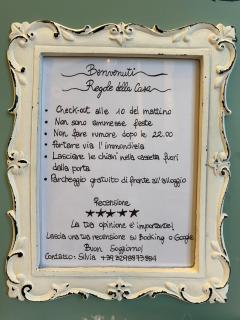 Benvenuti
Regole della Casa
• Check-out alle 10 del mattino
• Non sono ammesse feste
• Non fare rumore dopo le 22.00
• Portare via l'immondizia
• Lasciare le chiavi nella cassetta fuori
dalla porta
• Parcheggio gratuito di fronte all'alloggio
Recensione
★★★★★
La tua opinione è importante!
Lascia una tua recensione su Booking o Google
Buon Soggiorno!
Contatto: Silvia